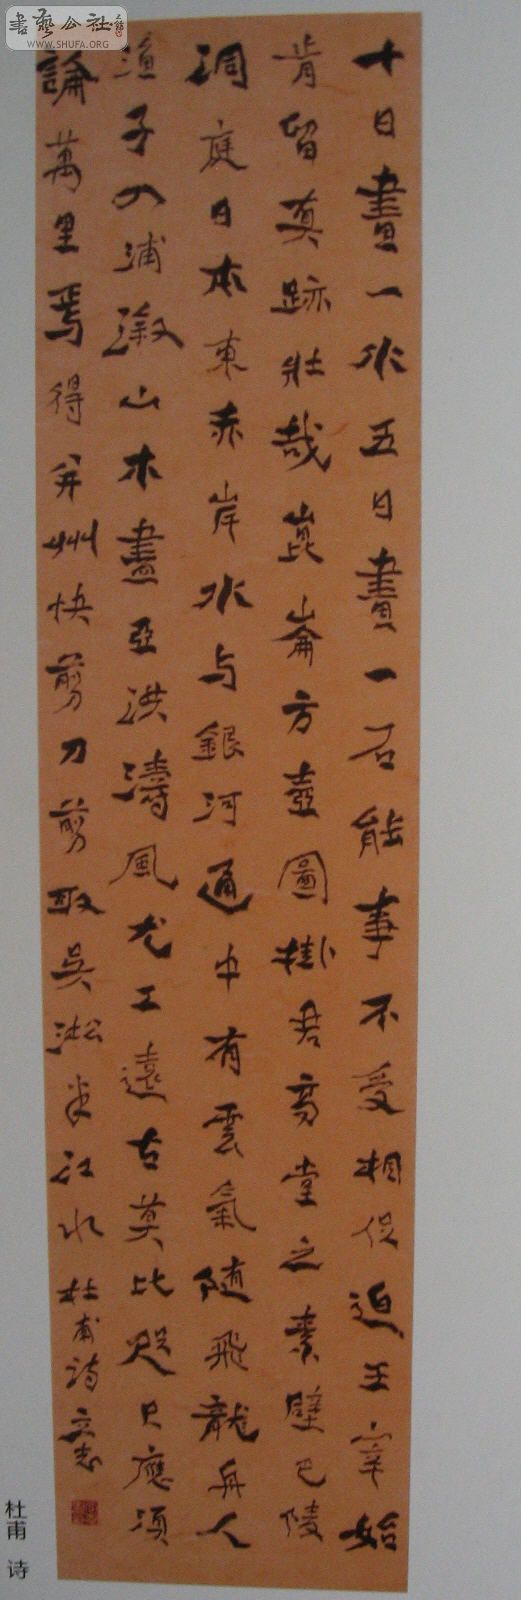 十日畫一水五日畫一石能事不受相促迫王宰始
肯留真跡壯哉崑崙方壺圖掛君高堂之素壁巴陵
洞庭日本東赤岸水与銀河通中有雲氣隨飛龍舟人
漁子入浦溆山木盡亞洪濤風尤工遠古莫比咫尺應須
論萬里焉得并州快剪刀剪取吳淞半江水杜甫詩立志
杜甫 诗
書藝公社
WWW.SHUFA.ORG